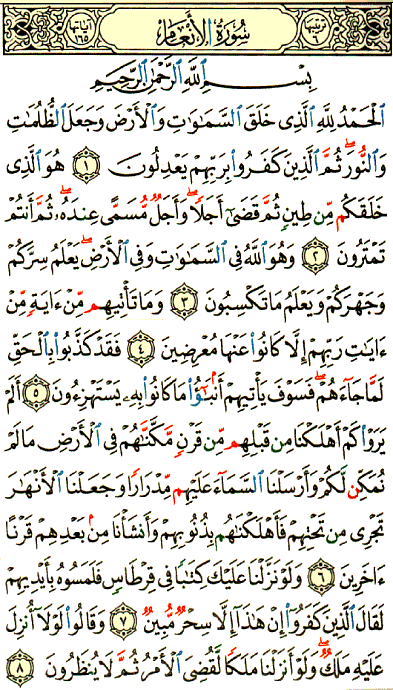 ترتيبها ٦ سُورَةُ الأَنْعَامِ آياتها ١٦٥
بِسْمِ اللَّهِ الرَّحْمَٰنِ الرَّحِيمِ
الْحَمْدُ لِلَّهِ الَّذِي خَلَقَ السَّمَاوَاتِ وَالْأَرْضَ وَجَعَلَ الظُّلُمَاتِ
وَالنُّورَ ۖ ثُمَّ الَّذِينَ كَفَرُوا بِرَبِّهِمْ يَعْدِلُونَ ١ هُوَ الَّذِي
خَلَقَكُم مِّن طِينٍ ثُمَّ قَضَىٰ أَجَلًا ۖ وَأَجَلٌ مُّسَمًّى عِندَهُ ۖ ثُمَّ أَنتُمْ
تَمْتَرُونَ ٢ وَهُوَ اللَّهُ فِي السَّمَاوَاتِ وَفِي الْأَرْضِ ۖ يَعْلَمُ سِرَّكُمْ
وَجَهْرَكُمْ وَيَعْلَمُ مَا تَكْسِبُونَ ٣ وَمَا تَأْتِيهِم مِّنْ ءَايَةٍ مِّنْ
ءَايَاتِ رَبِّهِمْ إِلَّا كَانُوا عَنْهَا مُعْرِضِينَ ٤ فَقَدْ كَذَّبُوا بِالْحَقِّ
لَمَّا جَاءَهُمْ ۖ فَسَوْفَ يَأْتِيهِمْ أَنبَٰٓؤُا مَا كَانُوا بِهِ يَسْتَهْزِءُونَ ٥ أَلَمْ
يَرَوْا كَمْ أَهْلَكْنَا مِن قَبْلِهِم مِّن قَرْنٍ مَّكَّنَّاهُمْ فِي الْأَرْضِ مَا لَمْ
نُمَكِّن لَّكُمْ وَأَرْسَلْنَا السَّمَاءَ عَلَيْهِم مِّدْرَارًا وَجَعَلْنَا الْأَنْهَارَ
تَجْرِي مِن تَحْتِهِمْ فَأَهْلَكْنَاهُم بِذُنُوبِهِمْ وَأَنشَأْنَا مِن بَعْدِهِمْ قَرْنًا
ءَاخَرِينَ ٦ وَلَوْ نَزَّلْنَا عَلَيْكَ كِتَابًا فِي قِرْطَاسٍ فَلَمَسُوهُ بِأَيْدِيهِمْ
لَقَالَ الَّذِينَ كَفَرُوا إِنْ هَٰذَا إِلَّا سِحْرٌ مُّبِينٌ ٧ وَقَالُوا لَوْلَا أُنزِلَ
عَلَيْهِ مَلَكٌ ۖ وَلَوْ أَنزَلْنَا مَلَكًا لَّقُضِيَ الْأَمْرُ ثُمَّ لَا يُنظَرُونَ ٨